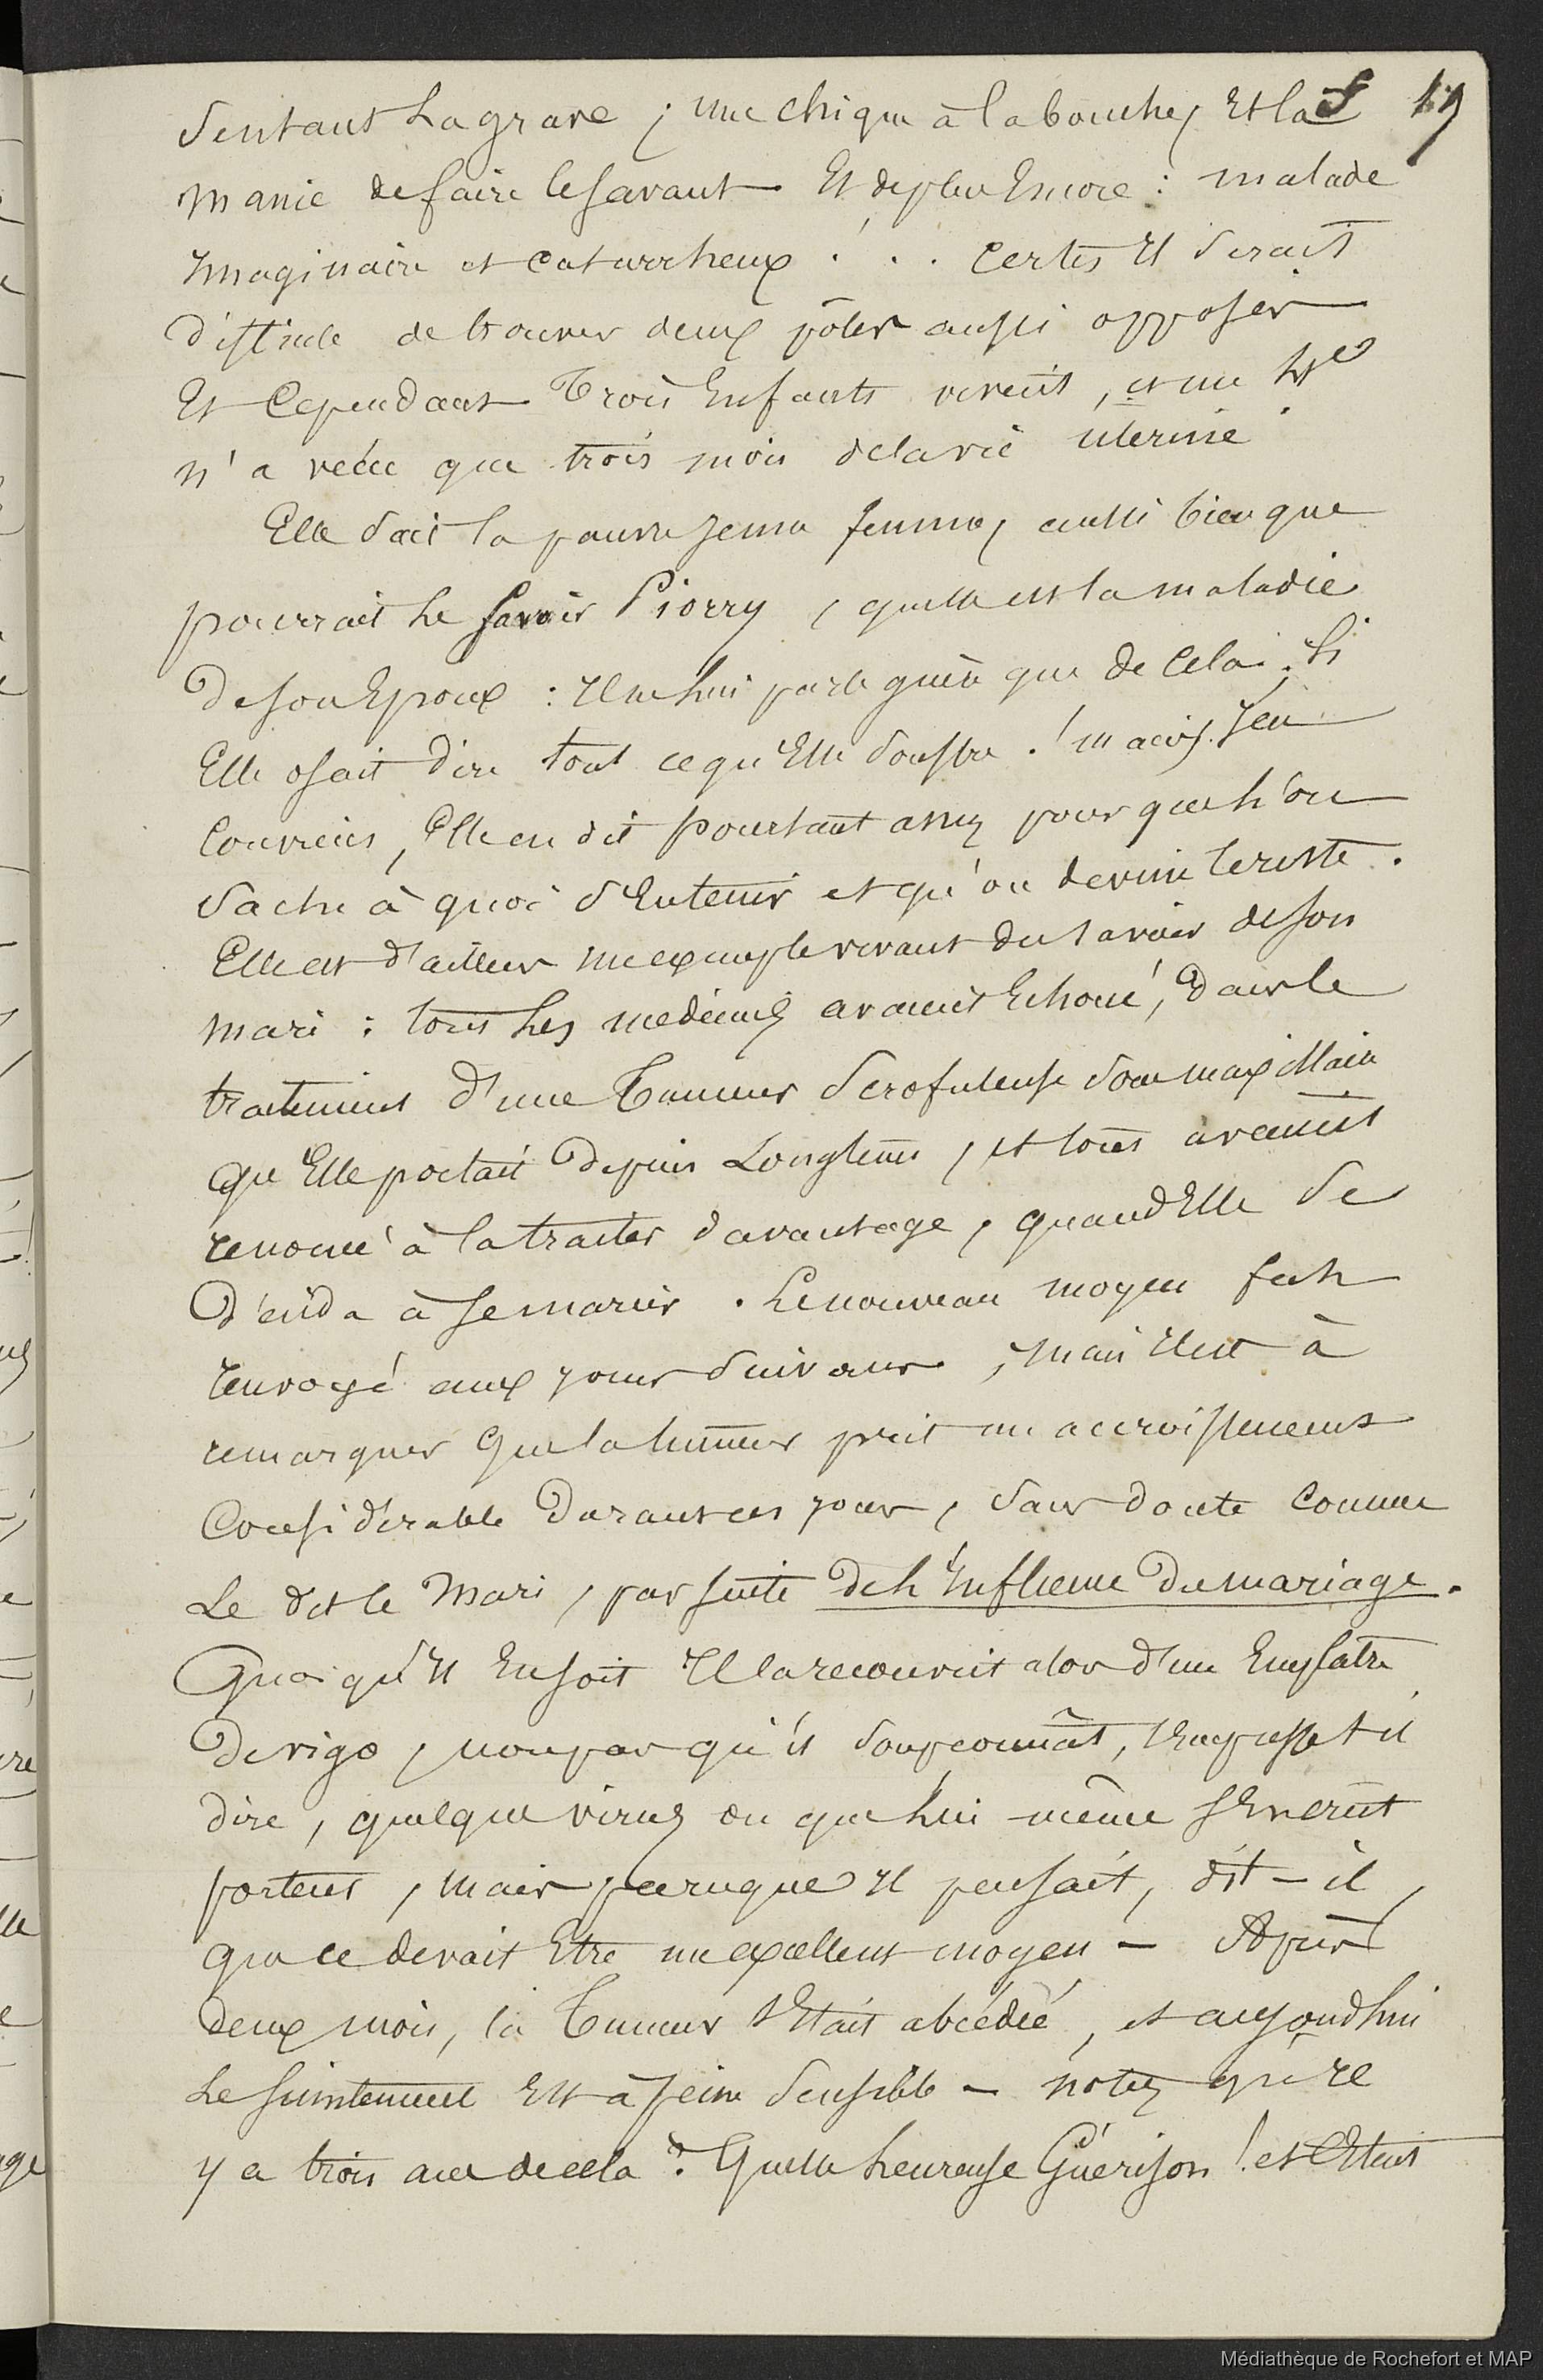 Sentant la grave ; une chique à la bouche, Et la 19
manie de faire le savant Et de plus Encore : malade
Imaginaire et catarrheux ! . . Certes Il serait
difficile de trouver deux pôles aussi opposés
Et Cependant Trois Enfants vivent, et un 4e
n'a vécu que trois mois de la vie utérine
Elle sait la pauvre jeune femme, aussi bien que
pourrait le savoir Piorry, quelle est la maladie
de son Epoux : Il ne lui parle guère que de Cela. Si
Elle osait dire tout ce qu'Elle souffre ! mais j'en
conviens, Elle en dit pourtant assez pour que l'on
sache à quoi s'En tenir et qu'on devine le reste.
Elle est d'ailleurs un exemple vivant du savoir de son
mari : tous les medecins avaient Echoué, dans le
traitement d'une Tumeur Scrofuleuse sous maxillaire
qu'Elle portait depuis Longtems, et tous avaient
renoncé à la traiter davantage, quand Elle se
décida à se marier. Le nouveau moyen fut
renvoyé aux jours suivans, mais Il est à
remarquer que la tumeur prit un accroissement
Considérable durant ces jours, sans doute comme
Le dit le Mari, par suite de l'Influence du mariage.
Quoi qu'Il En soit Il la recouvrit alors d'un Emplatre
de vigo, non pas qu'il soupçonnât, s'empresse t il
dire, quelque virus ou que lui même s'En crût
porteur, mais parceque Il pensait, dit-il,
que ce devait Etre un excellent moyen - Après
deux mois, la Tumeur s'Etait abcédée, et aujourdhui
Le suintement Est à peine sensible - notez qu'Il
y a trois ans de cela ? Quelle heureuse Guérison ! et C'Etait
Médiathèque de Rochefort et MAP